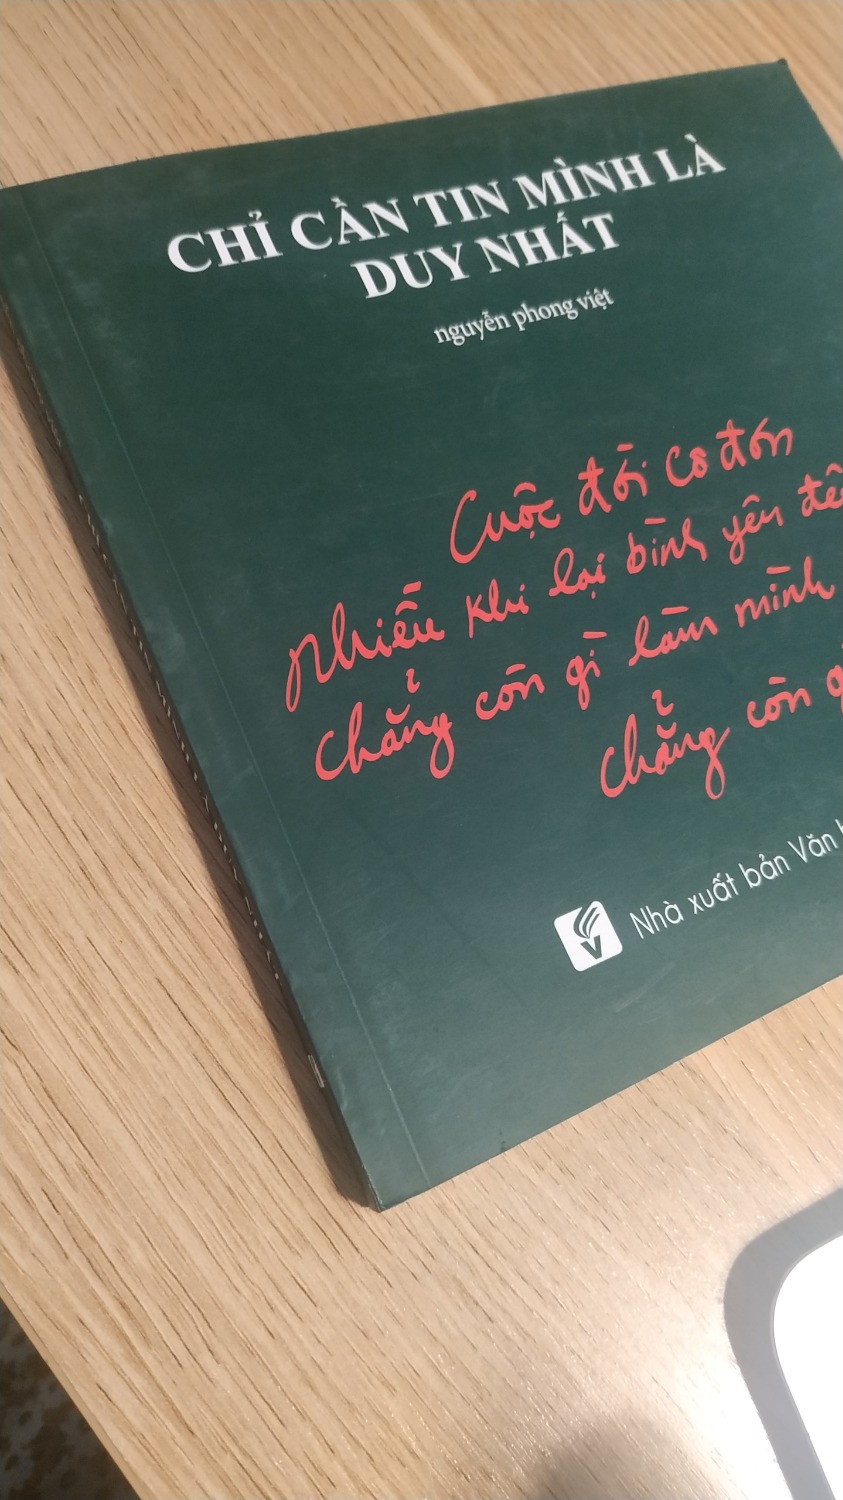 CHỈ CẦN TIN MÌNH LÀ
DUY NHẤT
nguyễn phong việt
Cuộc đời cô đơn
nhiều khi lại bình yên
chẳng còn gì làm mình
chẳng còn
Nhà xuất bản Văn